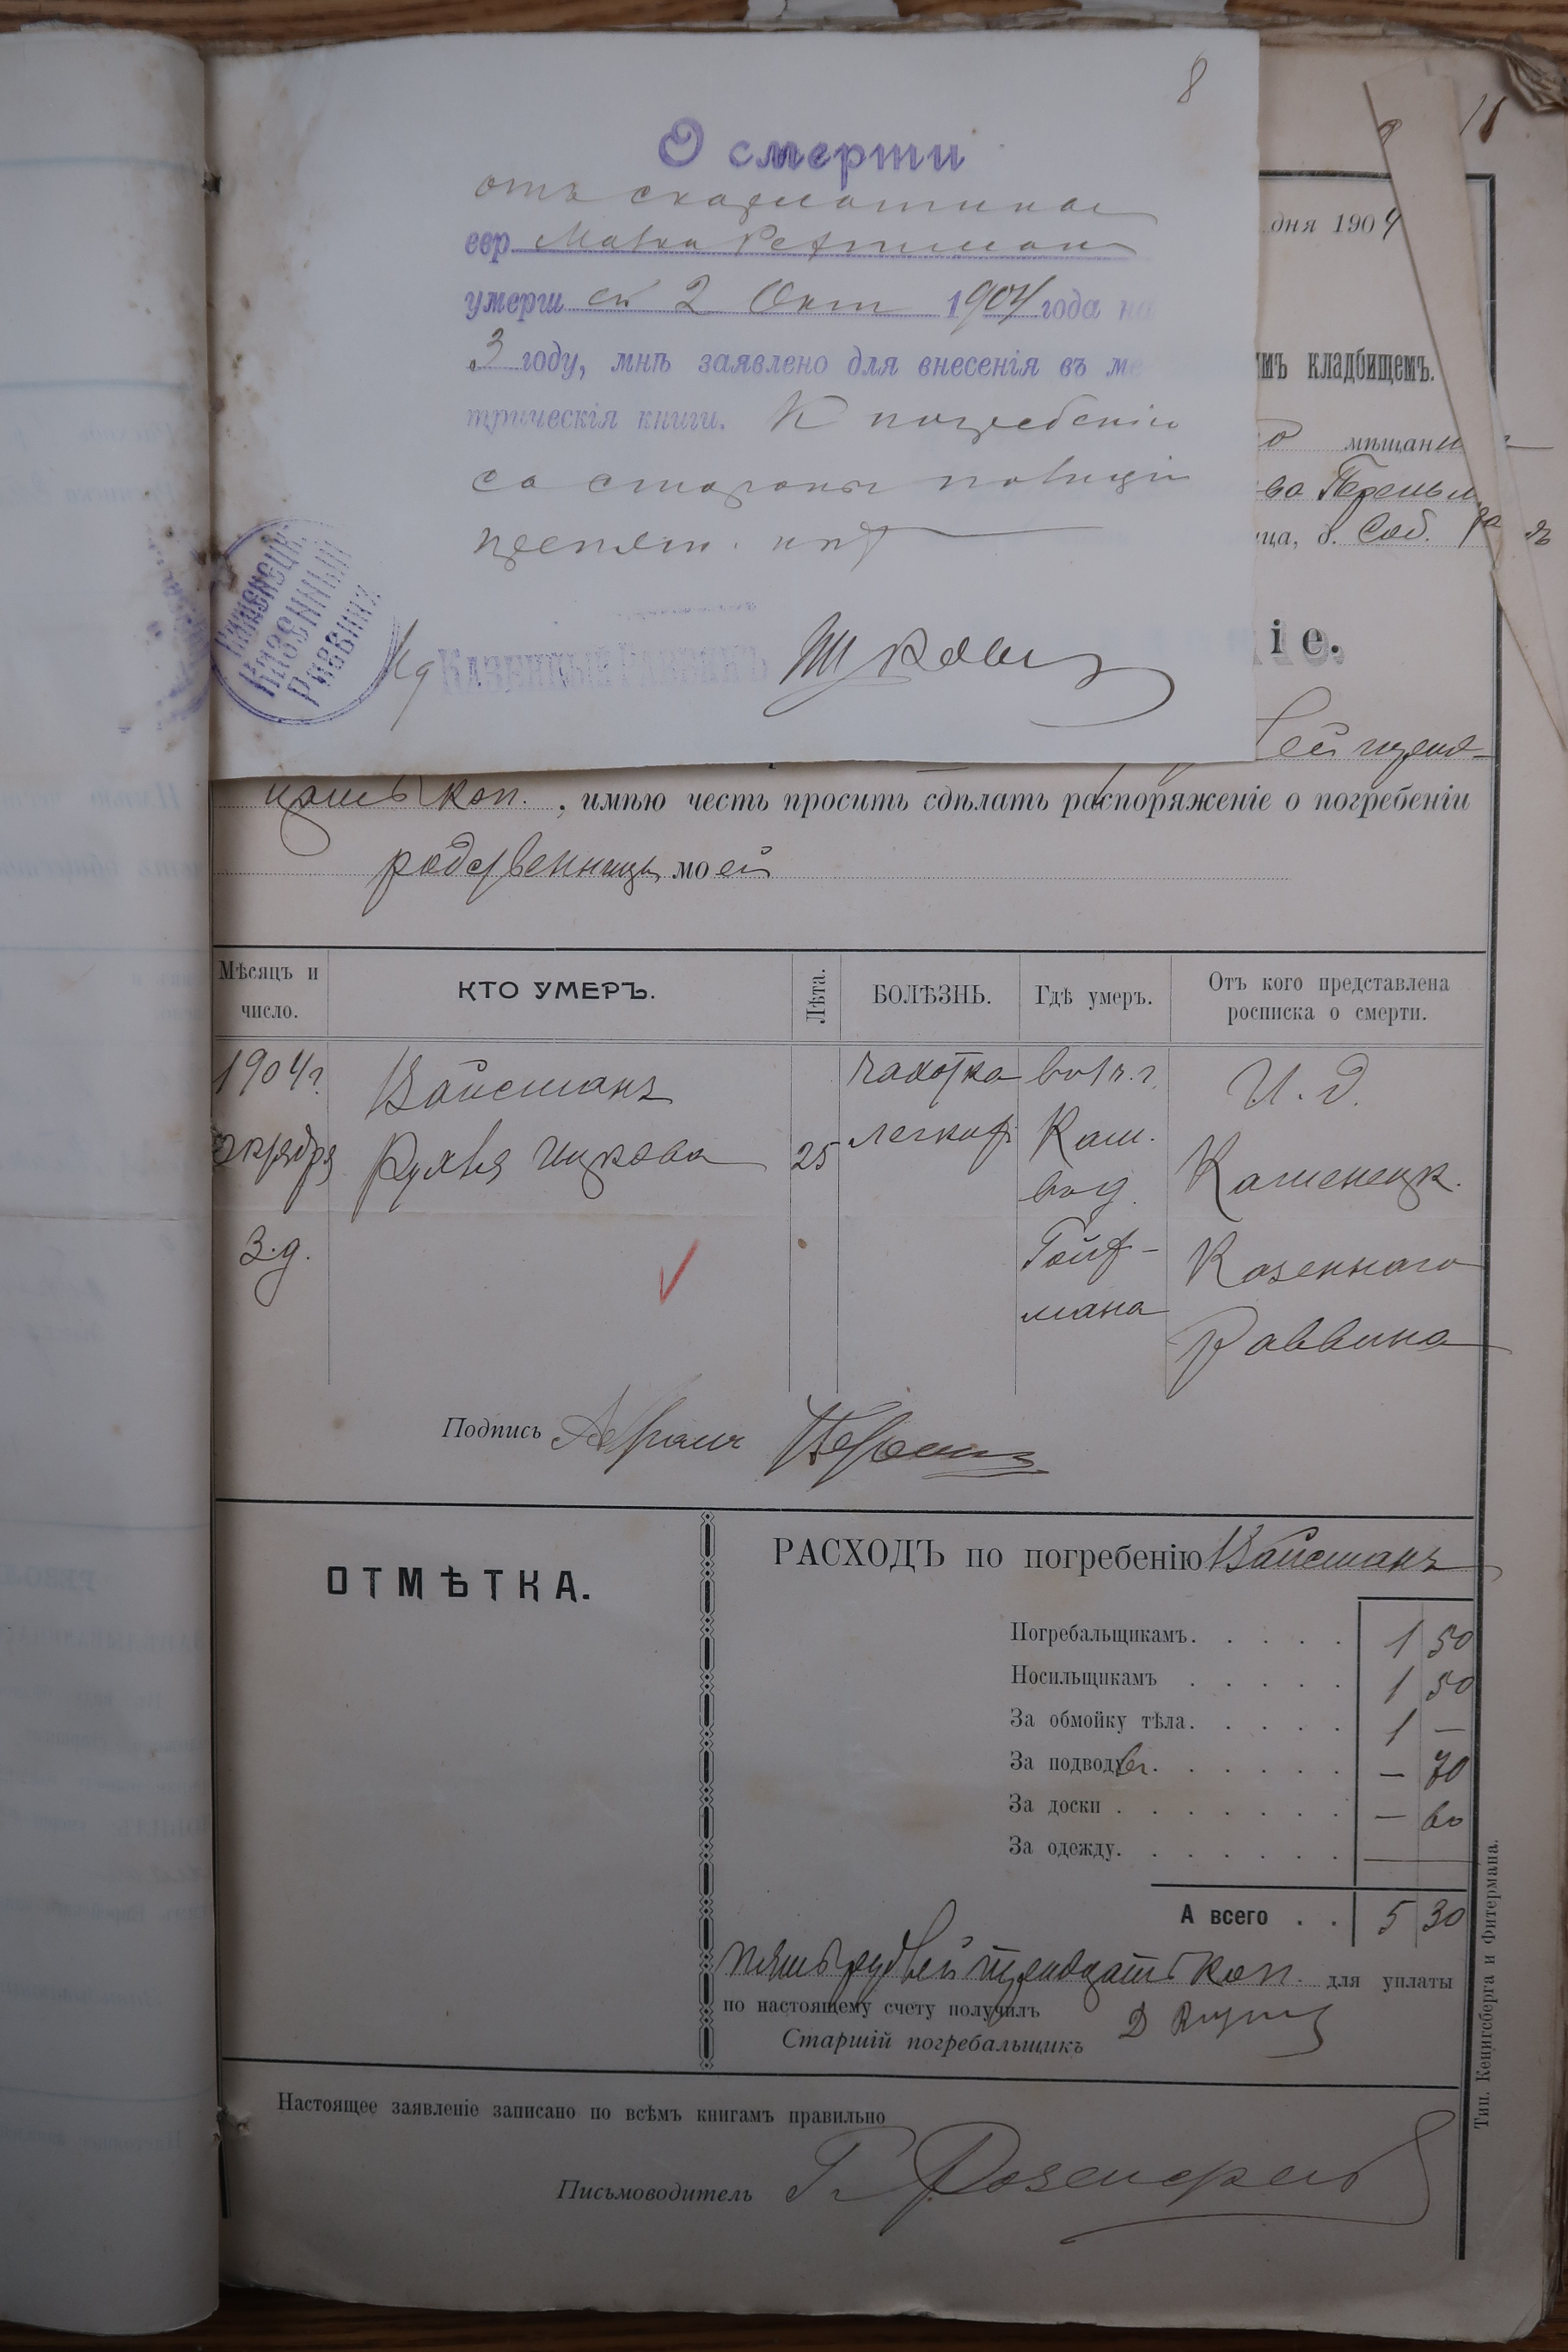 8
О смерти
отъ скарлатины
евр Малка Рейтман
умерш ей 2 Окт 1904 года на
3 году, мнѣ заявлено для внесенія въ ме
трическія книги. К погребенію
со стороны полиціи
препят. нѣт
Каменецк. Казенный Раввинъ
Ид Казенный Раввинъ
11
дня 1904
имъ кладбищемъ.
мѣщани
ца, д. Соб.
іе.
лей трид-
цать коп. , имѣю честь просить сдѣлать распоряженіе о погребеніи
родственницы моей
Мѣсяцъ и число. КТО УМЕРЪ. Лѣта. БОЛѢЗНЬ. Гдѣ умеръ. Отъ кого представлена росписка о смерти.
1904 г. Вайсманъ чахотка И. д.
октября Рухля Ицкова 25 легкихъ Кам. Каменецк.
3 д. Гойф- Казеннаго
мана Раввина
Подпись Абрам
ОТМѢТКА.
РАСХОДЪ по погребенію Вайсманъ
Погребальщикамъ. 1 50
Носильщикамъ 1 50
За обмойку тѣла. 1 —
За подводы. — 70
За доски — 60
За одежду.
А всего 5 30
пять рублей тридцать коп. для уплаты
по настоящему счету получилъ
Старшій погребальщикъ
Настоящее заявленіе записано по всѣмъ книгамъ правильно
Письмоводитель Г. Розенфельд
Тип. Кенигсберга и Фитермана.